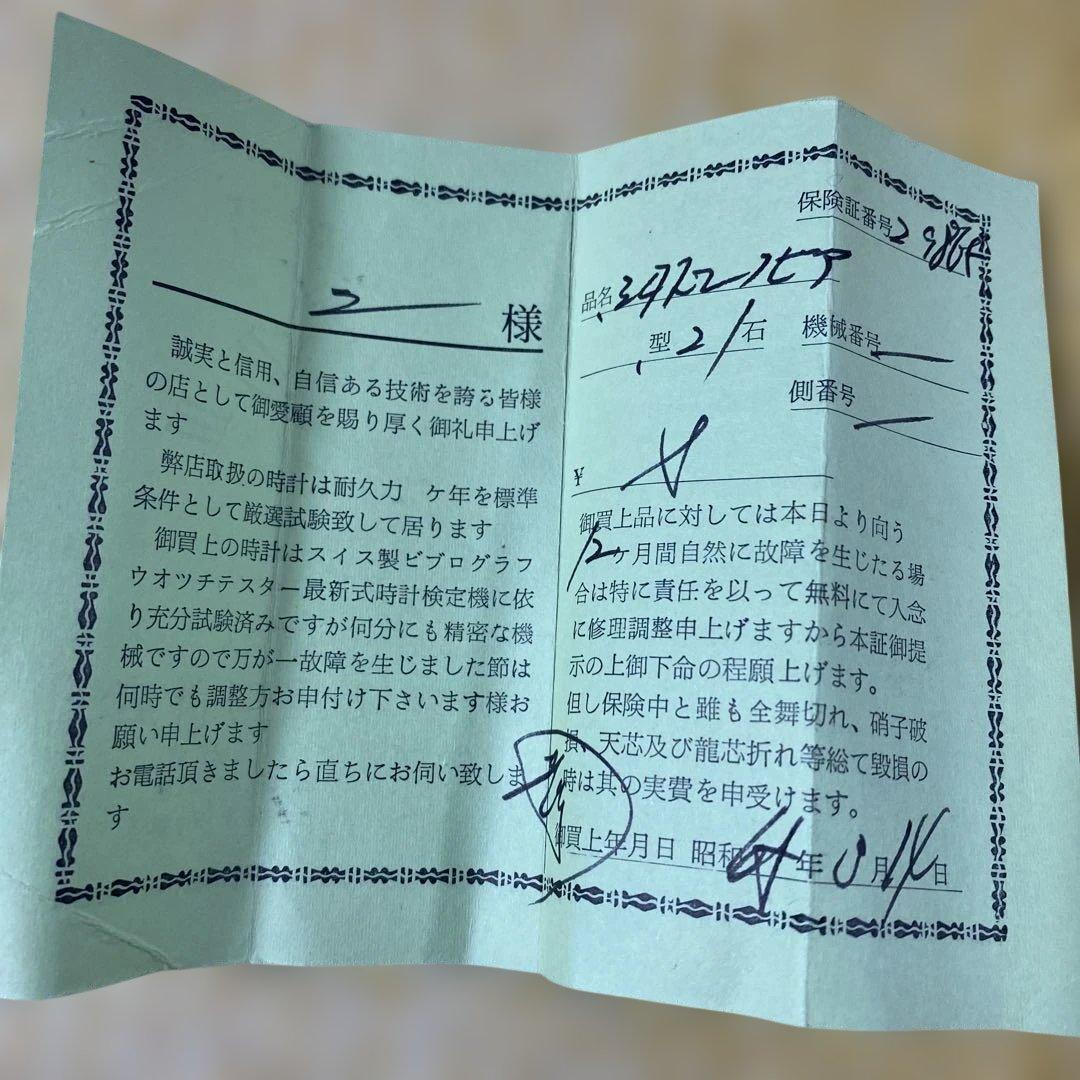 様
誠実と信用、自信ある技術を誇る皆様
の店として御愛顧を賜り厚く御礼申上げ
ます
弊店取扱の時計は耐久力 ケ年を標準
条件として厳選試験致して居ります
御買上の時計はスイス製ビブログラフ
ウオッチテスター最新式時計検定機に依
り充分試験済みですが何分にも精密な機
械ですので万が一故障を生じました節は
何時でも調整方お申付け下さいます様お
願い申上げます
お電話頂きましたら直ちにお伺い致しま
す
保険証番号
品名
型 21石 機械番号
側番号
¥
御買上品に対しては本日より向う
12ケ月間自然に故障を生じたる場
合は特に責任を以って無料にて入念
に修理調整申上げますから本証御提
示の上御下命の程願上げます。
但し保険中と雖も全舞切れ、硝子破
損、天芯及び龍芯折れ等総て毀損の
時は其の実費を申受けます。
御買上年月日 昭和 年 月14日